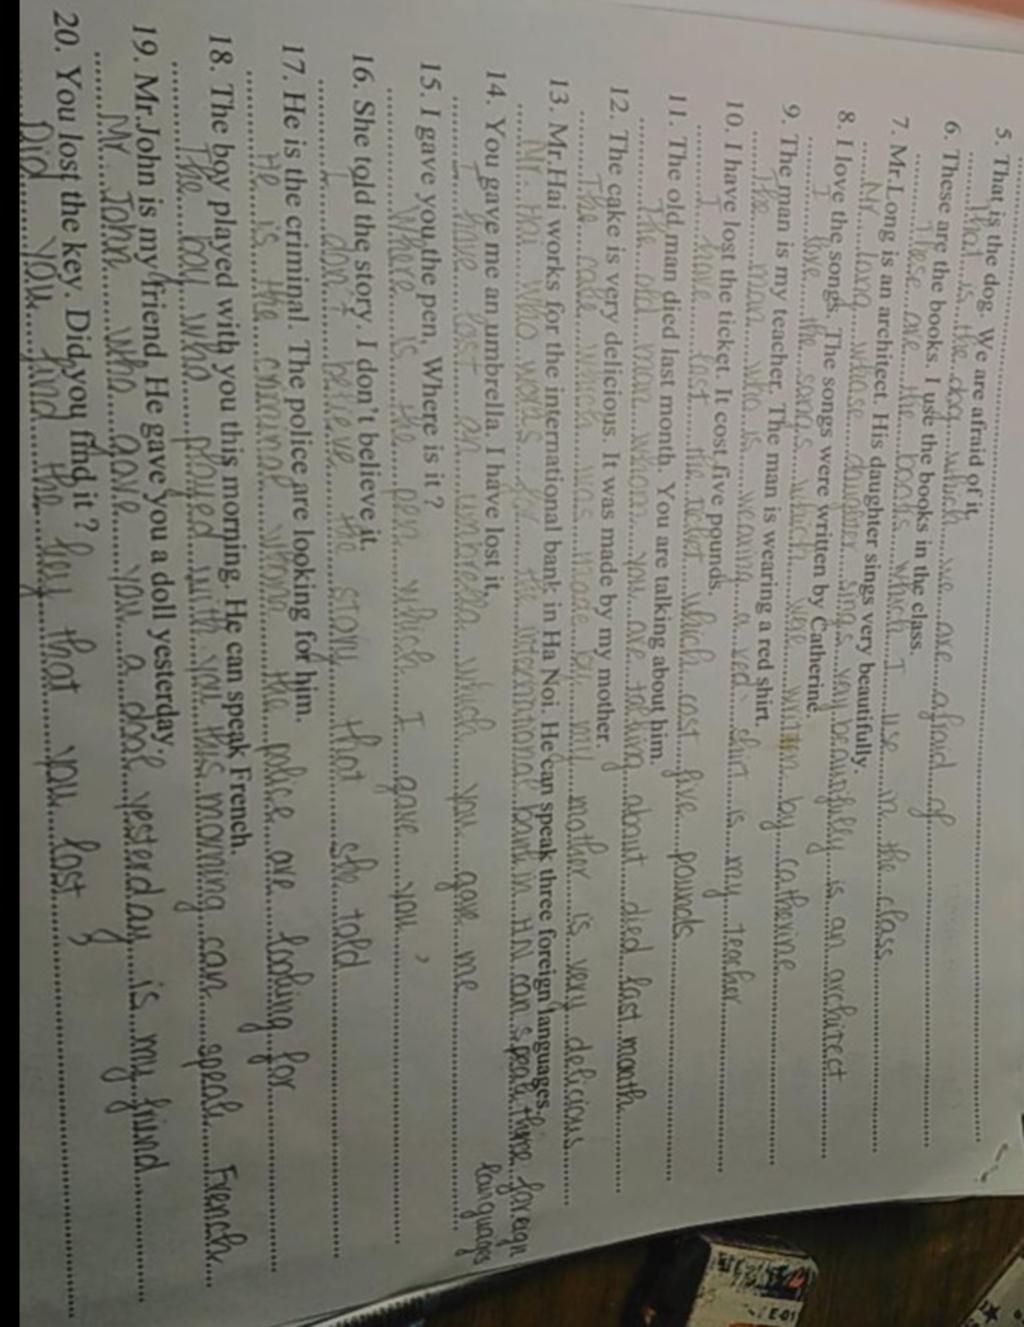 5. That is the dog. We are afraid of it.
That is the dog which we are afraid of
6. These are the books. I use the books in the class.
These are the books which I use in the class
7. Mr.Long is an architect. His daughter sings very beautifully.
Mr long whose sings very beautifully is an architect
8. I love the songs. The songs were written by Catherine.
I love the songs which were written by catherine
9. The man is my teacher. The man is wearing a red shirt.
The man who is wearing a red shirt is my teacher
10. I have lost the ticket. It cost five pounds.
I have lost the ticket which cost five pounds
11. The old man died last month. You are talking about him.
The old man whom you are talking about died last month
12. The cake is very delicious. It was made by my mother.
The cake which was made by my mother is very delicious
13. Mr.Hai works for the international bank in Ha Noi. He can speak three foreign languages.
Mr. Hai who works for the international bank in HN can speak three foreign languages
14. You gave me an umbrella. I have lost it.
I have lost an umbrella which you gave me
15. I gave you the pen. Where is it ?
Where is the pen which I gave you ?
16. She told the story. I don't believe it.
I don't believe the story that she told
17. He is the criminal. The police are looking for him.
He is the criminal whom the police are looking for
18. The boy played with you this morning. He can speak French.
The boy who played with you this morning can speak French
19. Mr.John is my friend. He gave you a doll yesterday.
Mr John who gave you a doll yesterday is my frind
20. You lost the key. Did you find it ?
Did you find the key that you lost ?